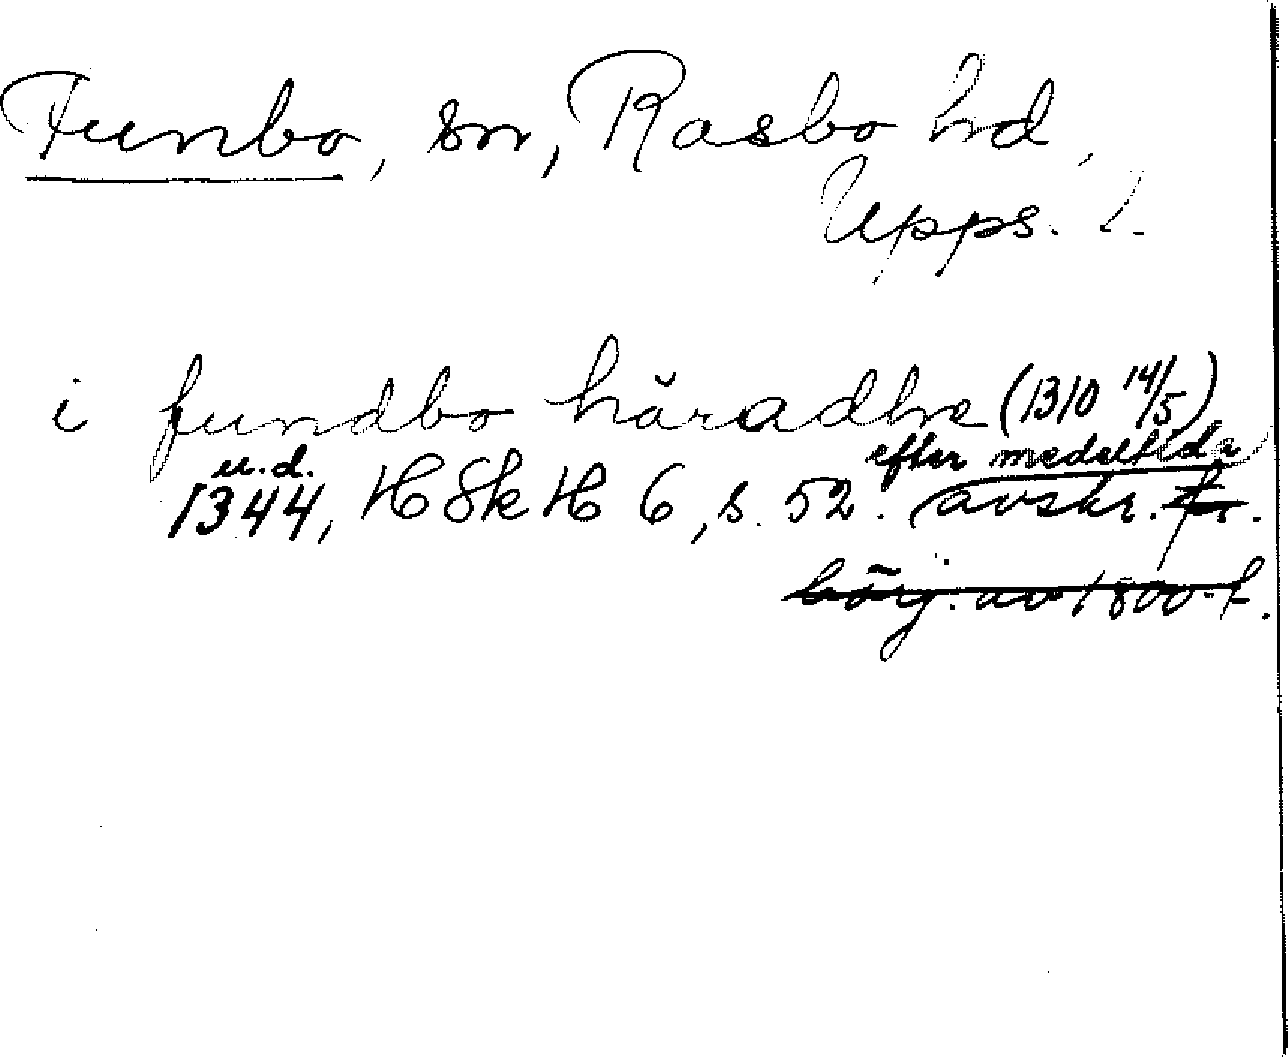 Funbo, sn, Rasbo hd,
Upps. l.
i fundbo häradhe (1310 14/5)
u.d. efter medeltida
1344, HSkH 6, s. 52. avskr. fr.
börj. av 1800-t.